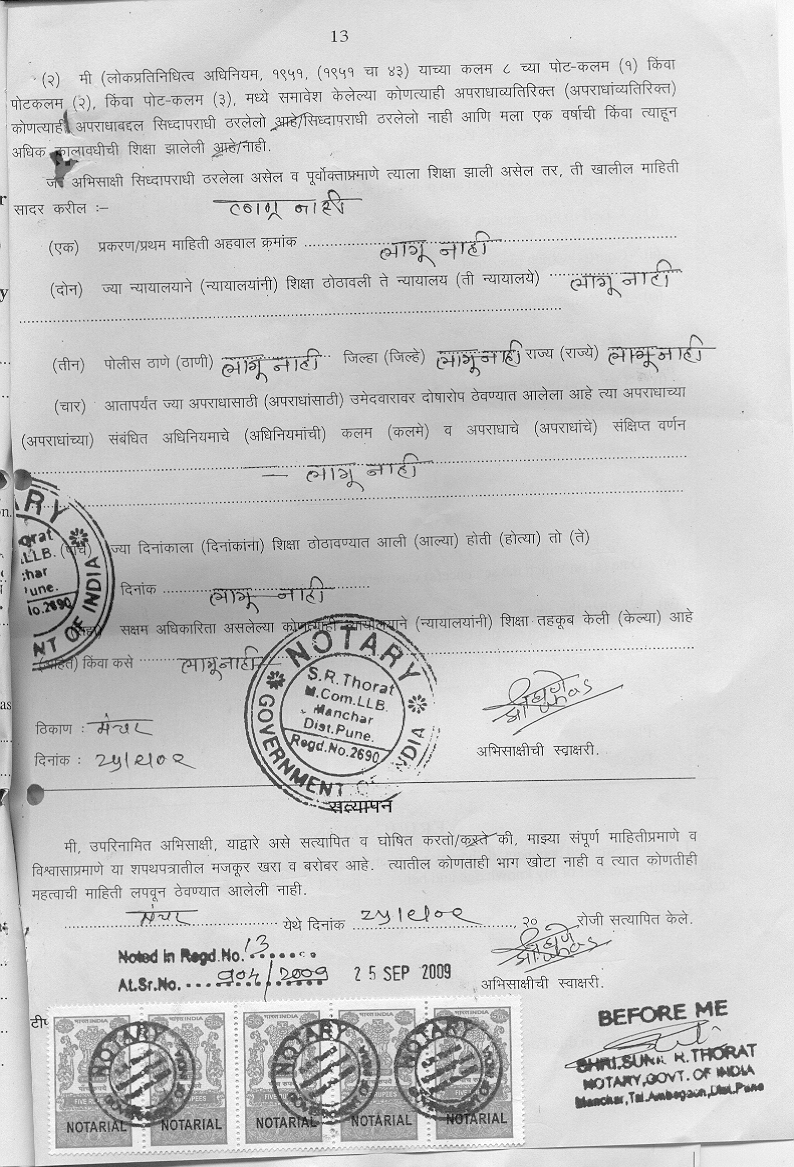 13
(२) मी (लोकप्रतिनिधित्व अधिनियम, १९५१, (१९५१ चा ४३) याच्या कलम ८ च्या पोट-कलम (१) किंवा
पोटकलम (२), किंवा पोट-कलम (३), मध्ये समावेश केलेल्या कोणत्याही अपराधाव्यतिरिक्त (अपराधांव्यतिरिक्त)
कोणत्याही अपराधाबद्दल सिध्दापराधी ठरलेलो आहे/सिध्दापराधी ठरलेलो नाही आणि मला एक वर्षाची किंवा त्याहून
अधिक कालावधीची शिक्षा झालेली आहे/नाही.
जर अभिसाक्षी सिध्दापराधी ठरलेला असेल व पूर्वोक्ताप्रमाणे त्याला शिक्षा झाली असेल तर, ती खालील माहिती
सादर करील :– लागू नाही
(एक) प्रकरण/प्रथम माहिती अहवाल क्रमांक लागू नाही
(दोन) ज्या न्यायालयाने (न्यायालयांनी) शिक्षा ठोठावली ते न्यायालय (ती न्यायालये) लागू नाही
(तीन) पोलीस ठाणे (ठाणी) लागू नाही जिल्हा (जिल्हे) लागू नाही राज्य (राज्ये) लागू नाही
(चार) आतापर्यंत ज्या अपराधासाठी (अपराधांसाठी) उमेदवारावर दोषारोप ठेवण्यात आलेला आहे त्या अपराधाच्या
(अपराधांच्या) संबंधित अधिनियमाचे (अधिनियमांची) कलम (कलमे) व अपराधाचे (अपराधांचे) संक्षिप्त वर्णन
– लागू नाही
(पाच) ज्या दिनांकाला (दिनांकांना) शिक्षा ठोठावण्यात आली (आल्या) होती (होत्या) तो (ते)
दिनांक लागू नाही
सक्षम अधिकारिता असलेल्या कोणत्याही न्यायालयाने (न्यायालयांनी) शिक्षा तहकूब केली (केल्या) आहे
(आहेत) किंवा कसे लागू नाही
NOTARY
S.R. Thorat
M.Com.LLB.
Manchar
Dist.Pune.
Regd.No.2690
GOVERNMENT OF INDIA
ठिकाण : मंचर
दिनांक : २५/९/०९
अभिसाक्षीची स्वाक्षरी.
सत्यापन
मी, उपरिनामित अभिसाक्षी, याद्वारे असे सत्यापित व घोषित करतो/करते की, माझ्या संपूर्ण माहितीप्रमाणे व
विश्वासाप्रमाणे या शपथपत्रातील मजकूर खरा व बरोबर आहे. त्यातील कोणताही भाग खोटा नाही व त्यात कोणतीही
महत्वाची माहिती लपवून ठेवण्यात आलेली नाही.
मंचर येथे दिनांक २५/९/०९, २० रोजी सत्यापित केले.
Noted in Regd.No. 13
At.Sr.No. 904/2009 25 SEP 2009
अभिसाक्षीची स्वाक्षरी.
BEFORE ME
SHRI.SUNIL R.THORAT
NOTARY,GOVT. OF INDIA
Manchar,Tal.Ambegaon,Dist.Pune
NOTARIAL NOTARIAL NOTARIAL NOTARIAL NOTARIAL